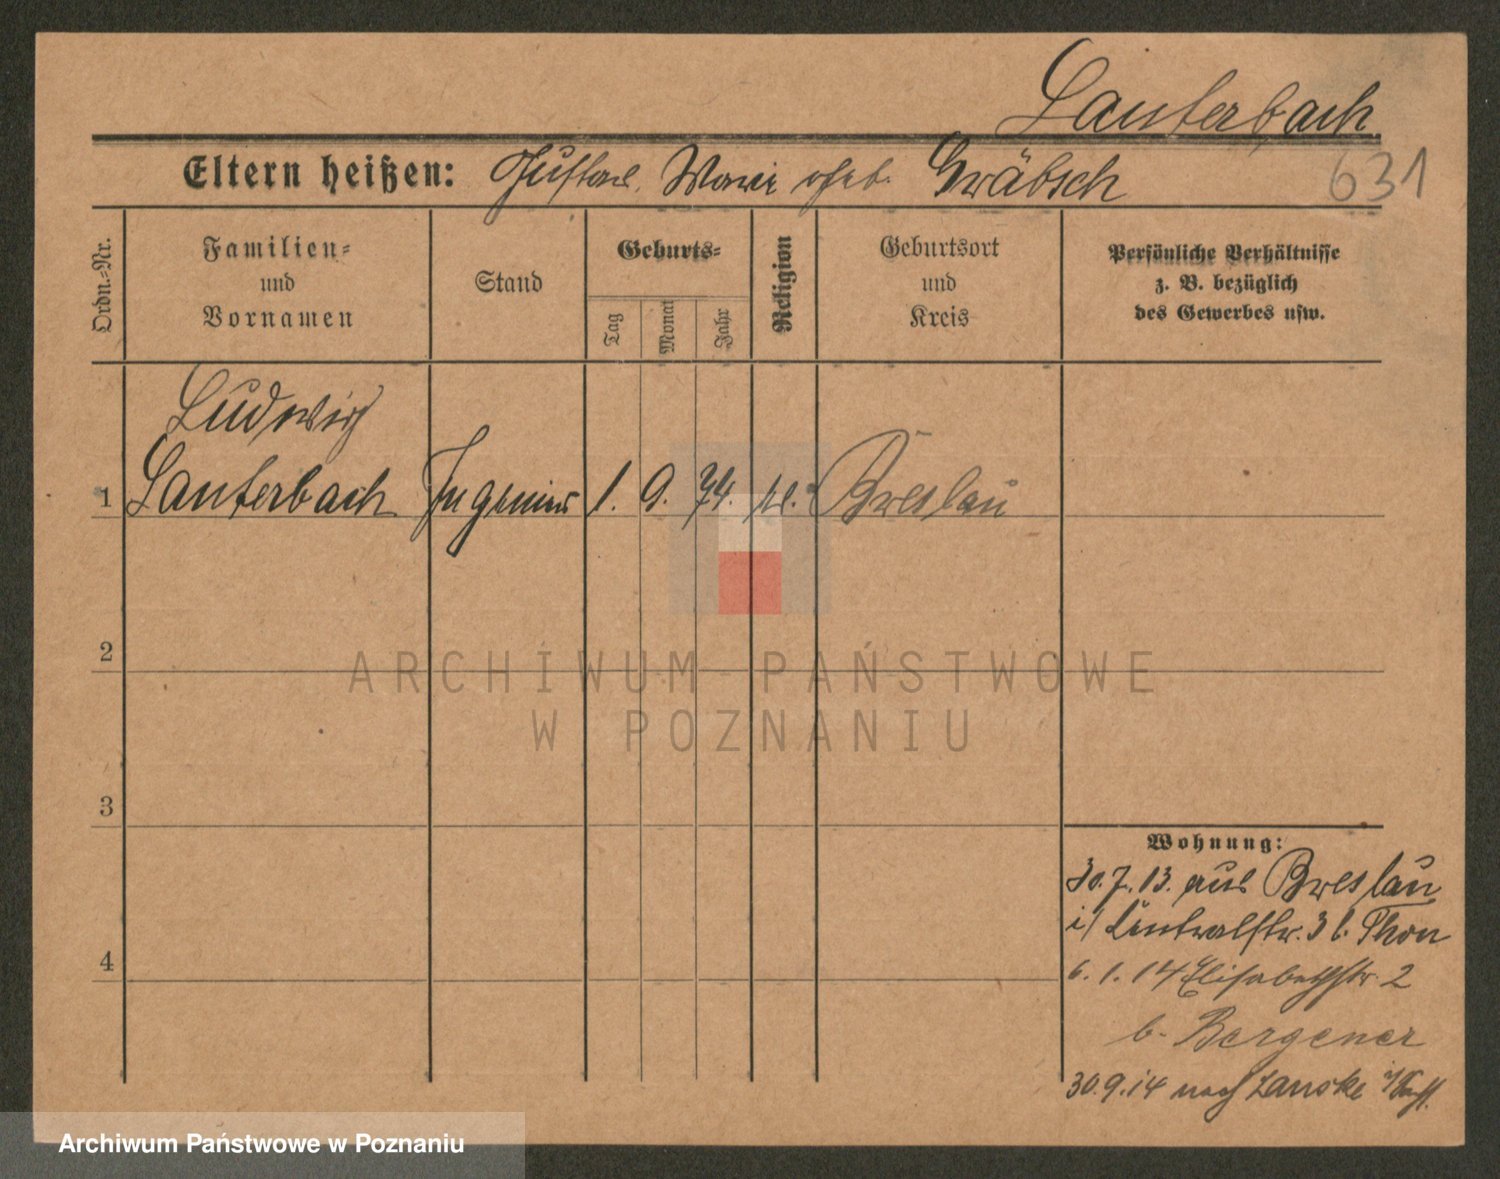 Lauterbach.
Eltern heißen: Gustav, Marie geb. Gräbsch
631
Ordn.-Nr.
Familien- und Vornamen
Stand
Geburts-
Tag
Monat
Jahr
Religion
Geburtsort und Kreis
Persönliche Verhältnisse
z. B. bezüglich
des Gewerbes usw.
Ludwig
1 Lauterbach Ingenieur 1. 9. 74. Breslau
2
3
4
ARCHIWUM PAŃSTWOWE
W POZNANIU
Wohnung:
30.7.13. aus Breslau
i/ Centralstr. 3 b. Thon
6.1.14 Elisabethstr. 2
b. Bergener
30.9.14 nach Lauske
Archiwum Państwowe w Poznaniu